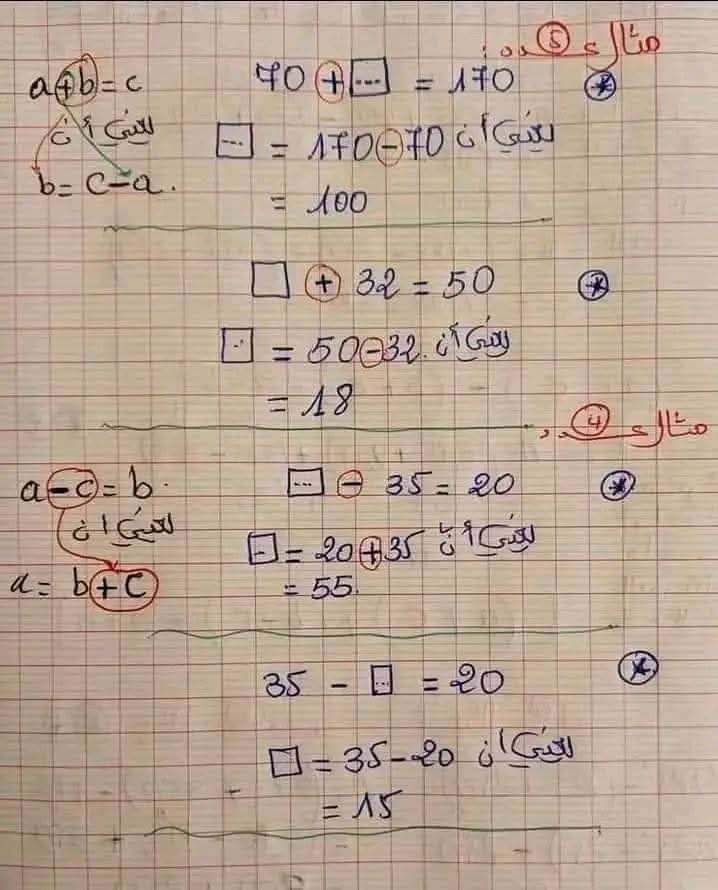 مثال عدد 5 :
70 + ... = 170
a + b = c
يعني أن
... = 170 - 70 يعني أن
b = c - a.
= 100
□ + 32 = 50
... = 50 - 32. يعني أن
= 18
مثال عدد 4
... - 35 = 20
a - c = b.
يعني أن
... = 20 + 35 يعني أن
= 55.
a = b + c
35 - ... = 20
□ = 35 - 20 يعني أن
= 15